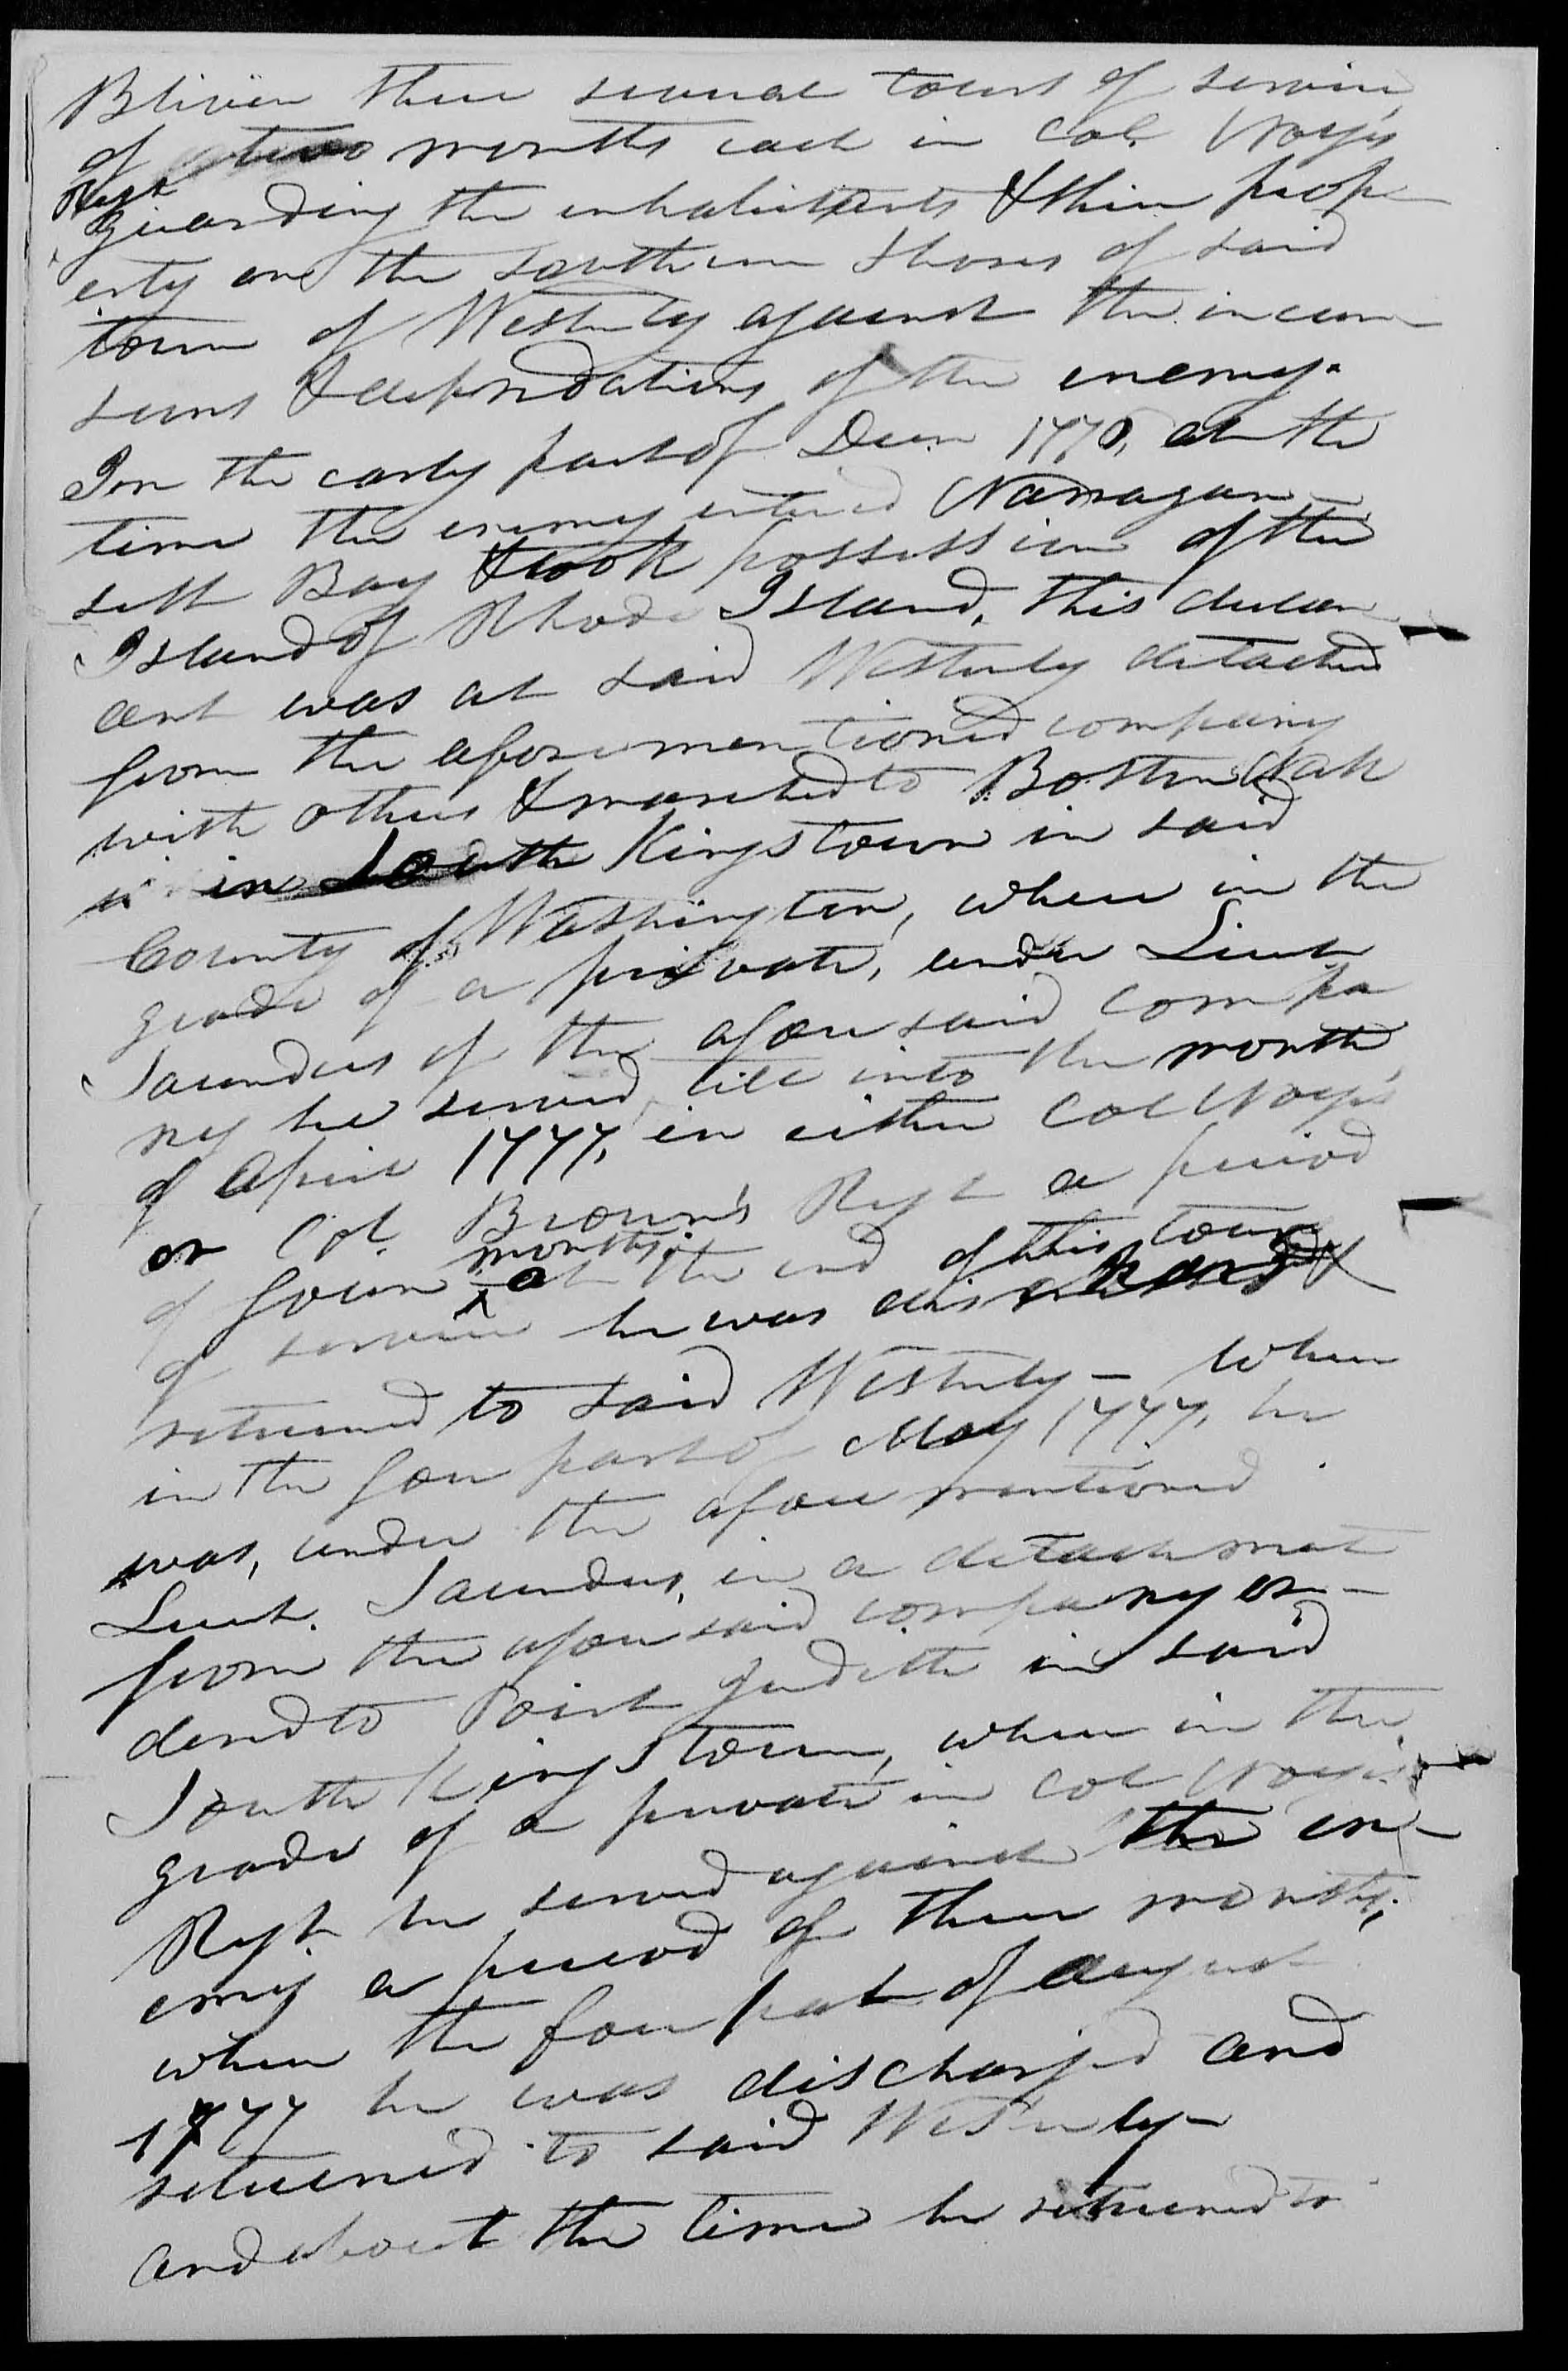 Bliven three several tours of service
of two months each in Col. Noyes
Regt
guarding the inhabitants & their prop
erty on the southern shores of said
town of Westerly against the incur
sions & depredations of the enemy.
In the early part of Decr. 1776, at the
time the enemy entered Narragan
sett Bay & took possession of the
Island of Rhode Island, this declar
ant was at said Westerly detached
from the aforementioned company
with others & marched to Boston Neck
in South Kingstown in said
County of Washington, where in the
grade of a private, under Lieut
Saunders of the aforesaid compa
ny he served till into the month
of April 1777, in either Col Noyes's
or Col. Brown's Regt a period
of four months, at the end of this tour
of service he was discharged &
returned to said Westerly - where
in the fore part of May 1777, he
was, under the afore mentioned
Lieut. Saunders, in a detachment
from the aforesaid company or-
dered to Point Judith in said
South Kingstown, where in the
grade of a private in Col Noyes's
Regt. he served against the en-
emy a period of three months,
when the fore part of August
1777 he was discharged and
returned to said Westerly-
and about the time he returned to